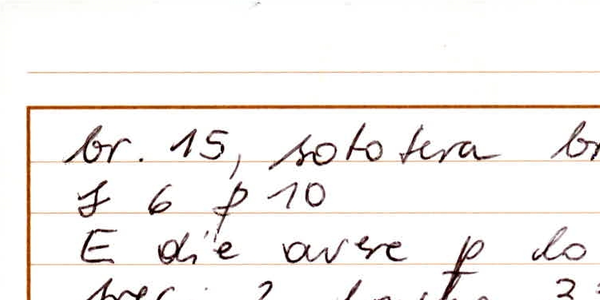 br. 15, sototera br
£ 6 p 10
E die avere p lo